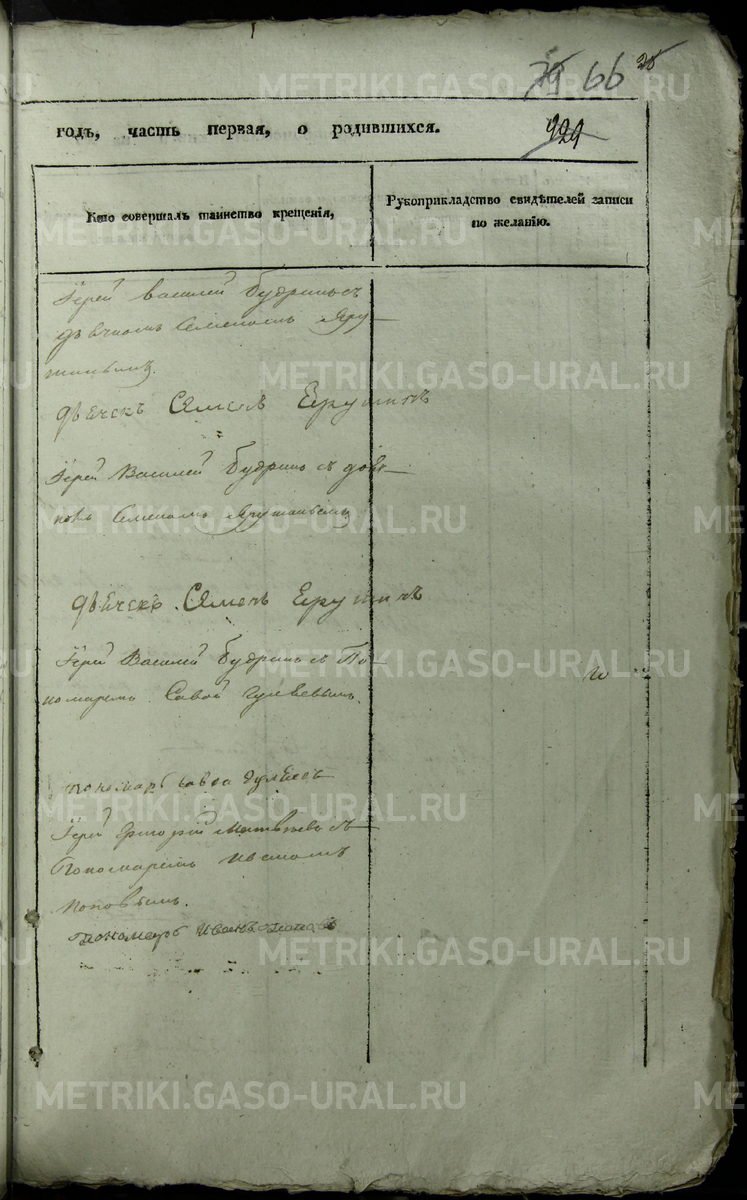 66
годъ, часть первая, о родившихся.
Кто совершалъ таинство крещенія,
Рукоприкладство свидѣтелей записи
по желанію.
Іерей Василей Будринъ съ
дьячкомъ Семеномъ Яру-
шинымъ.
дьячекъ Семенъ Ерушинъ
Іерей Василей Будринъ съ дьяч-
комъ Семеномъ
дьячекъ Семенъ Ерушинъ
Іерей Василей Будринъ съ По-
номаремъ Савой Гуляевымъ.
пономарь Савва Гуляевъ
Іерей Григорий Матвѣевъ съ
Пономаремъ Иваномъ
Поповымъ.
пономарь Иванъ Поповъ
METRIKI.GASO-URAL.RU